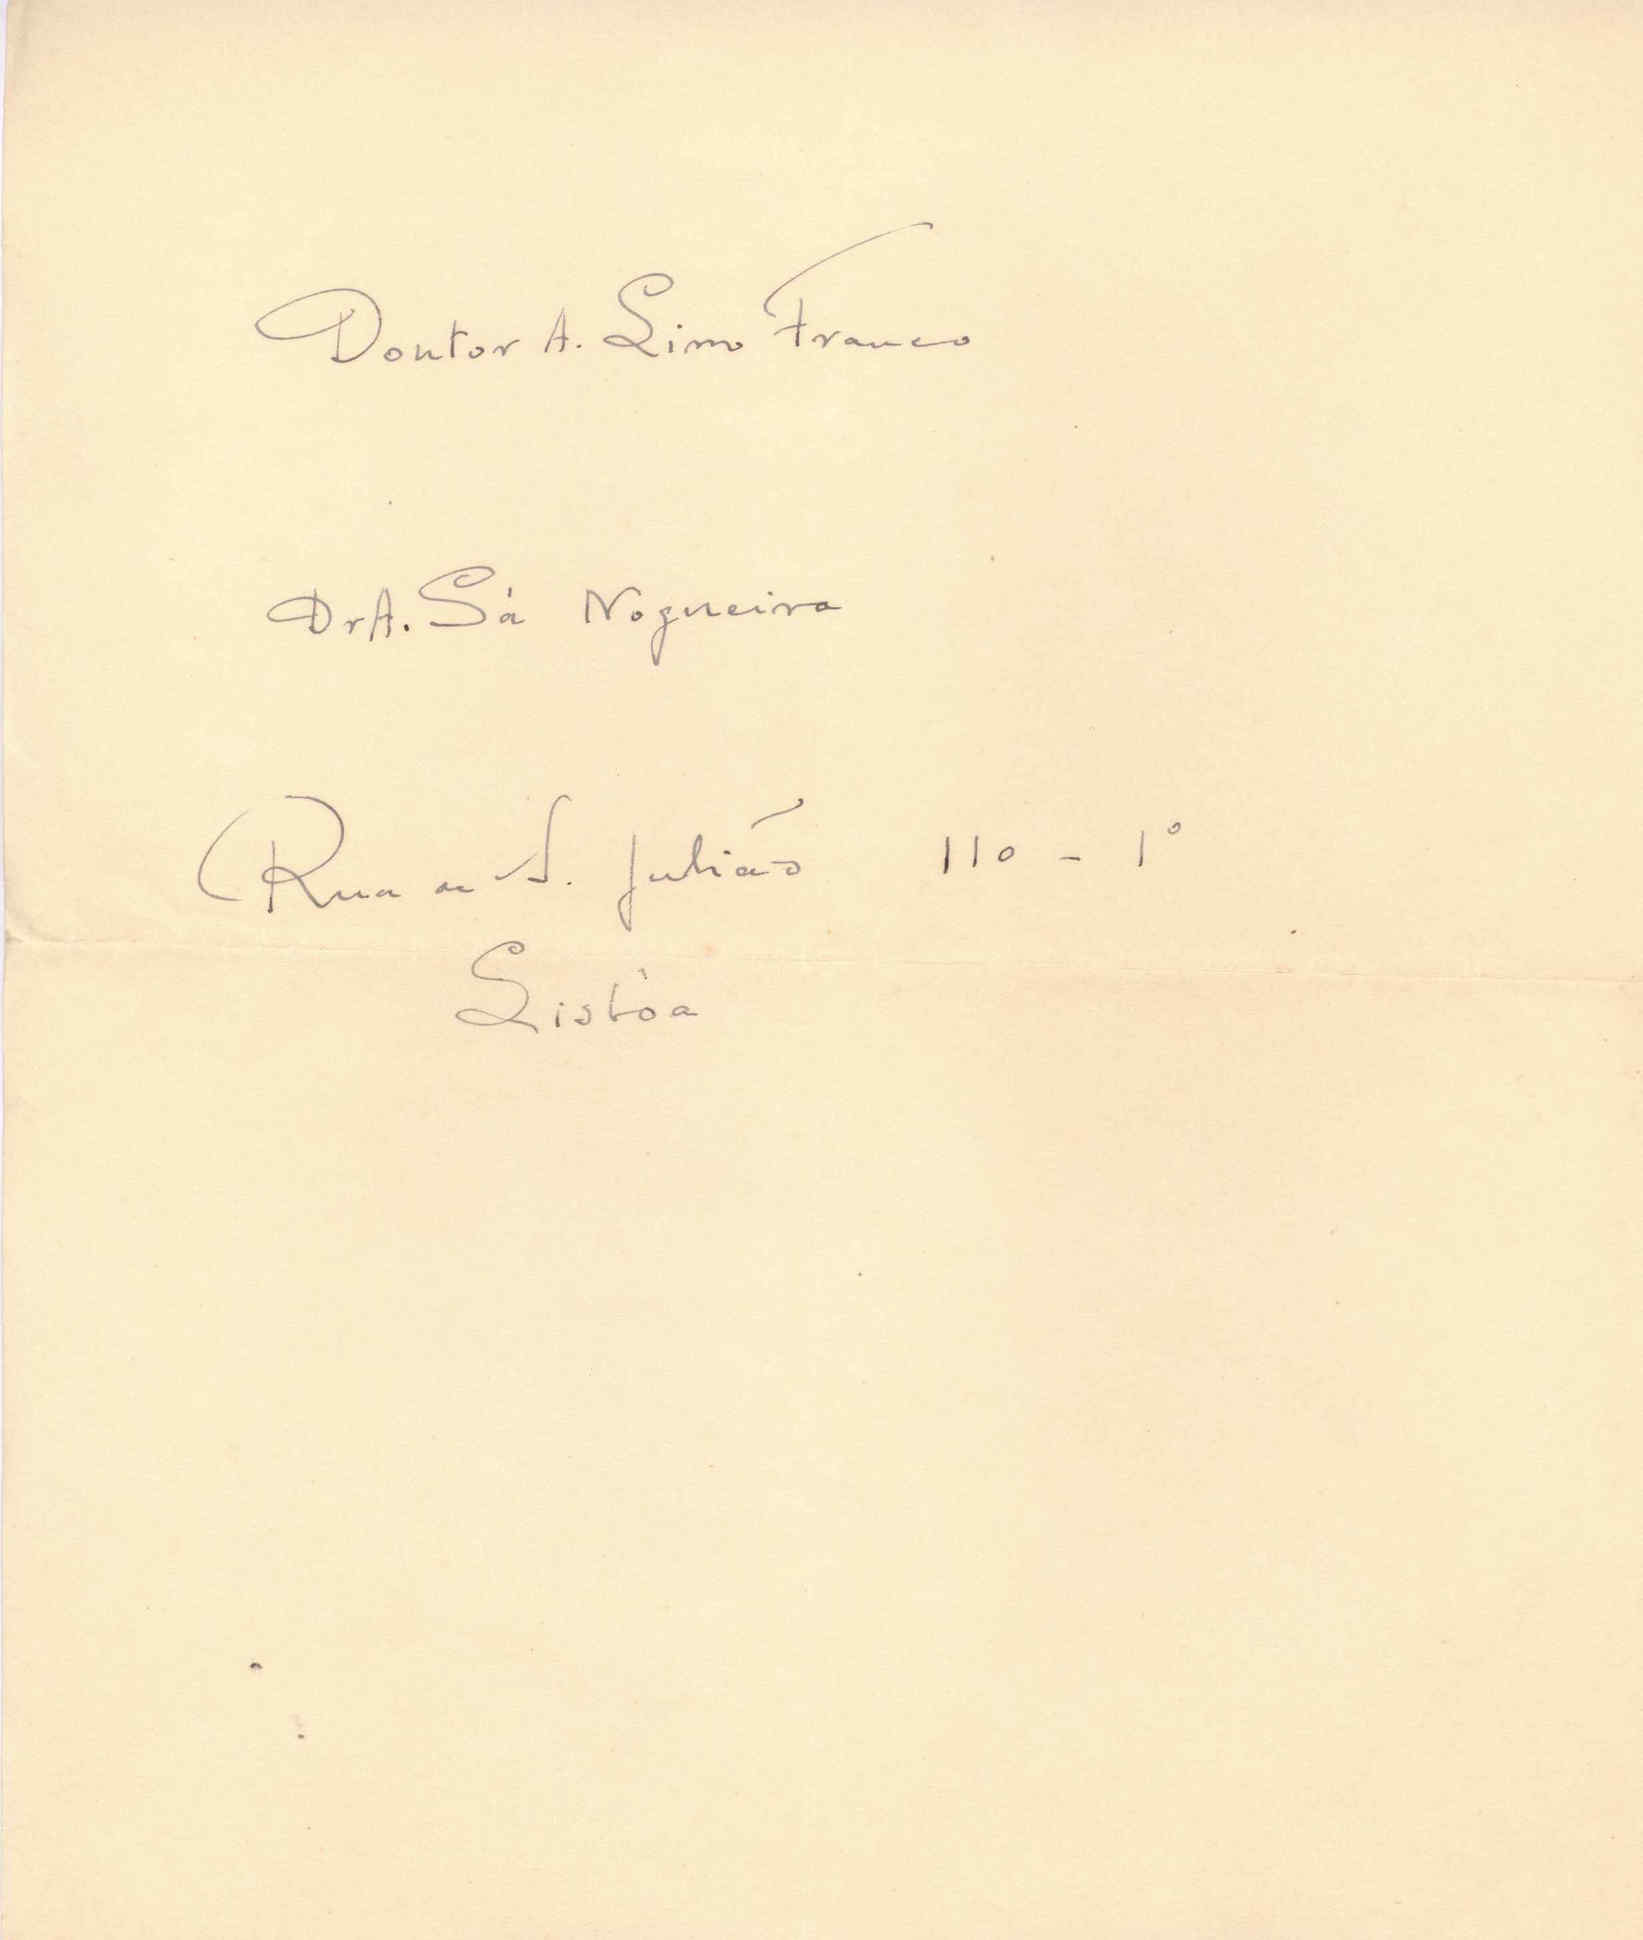 Doutor A. Simo Franco
Dr A. Sá Nogueira
Rua de S. Julião 110 - 1º
Lisbôa